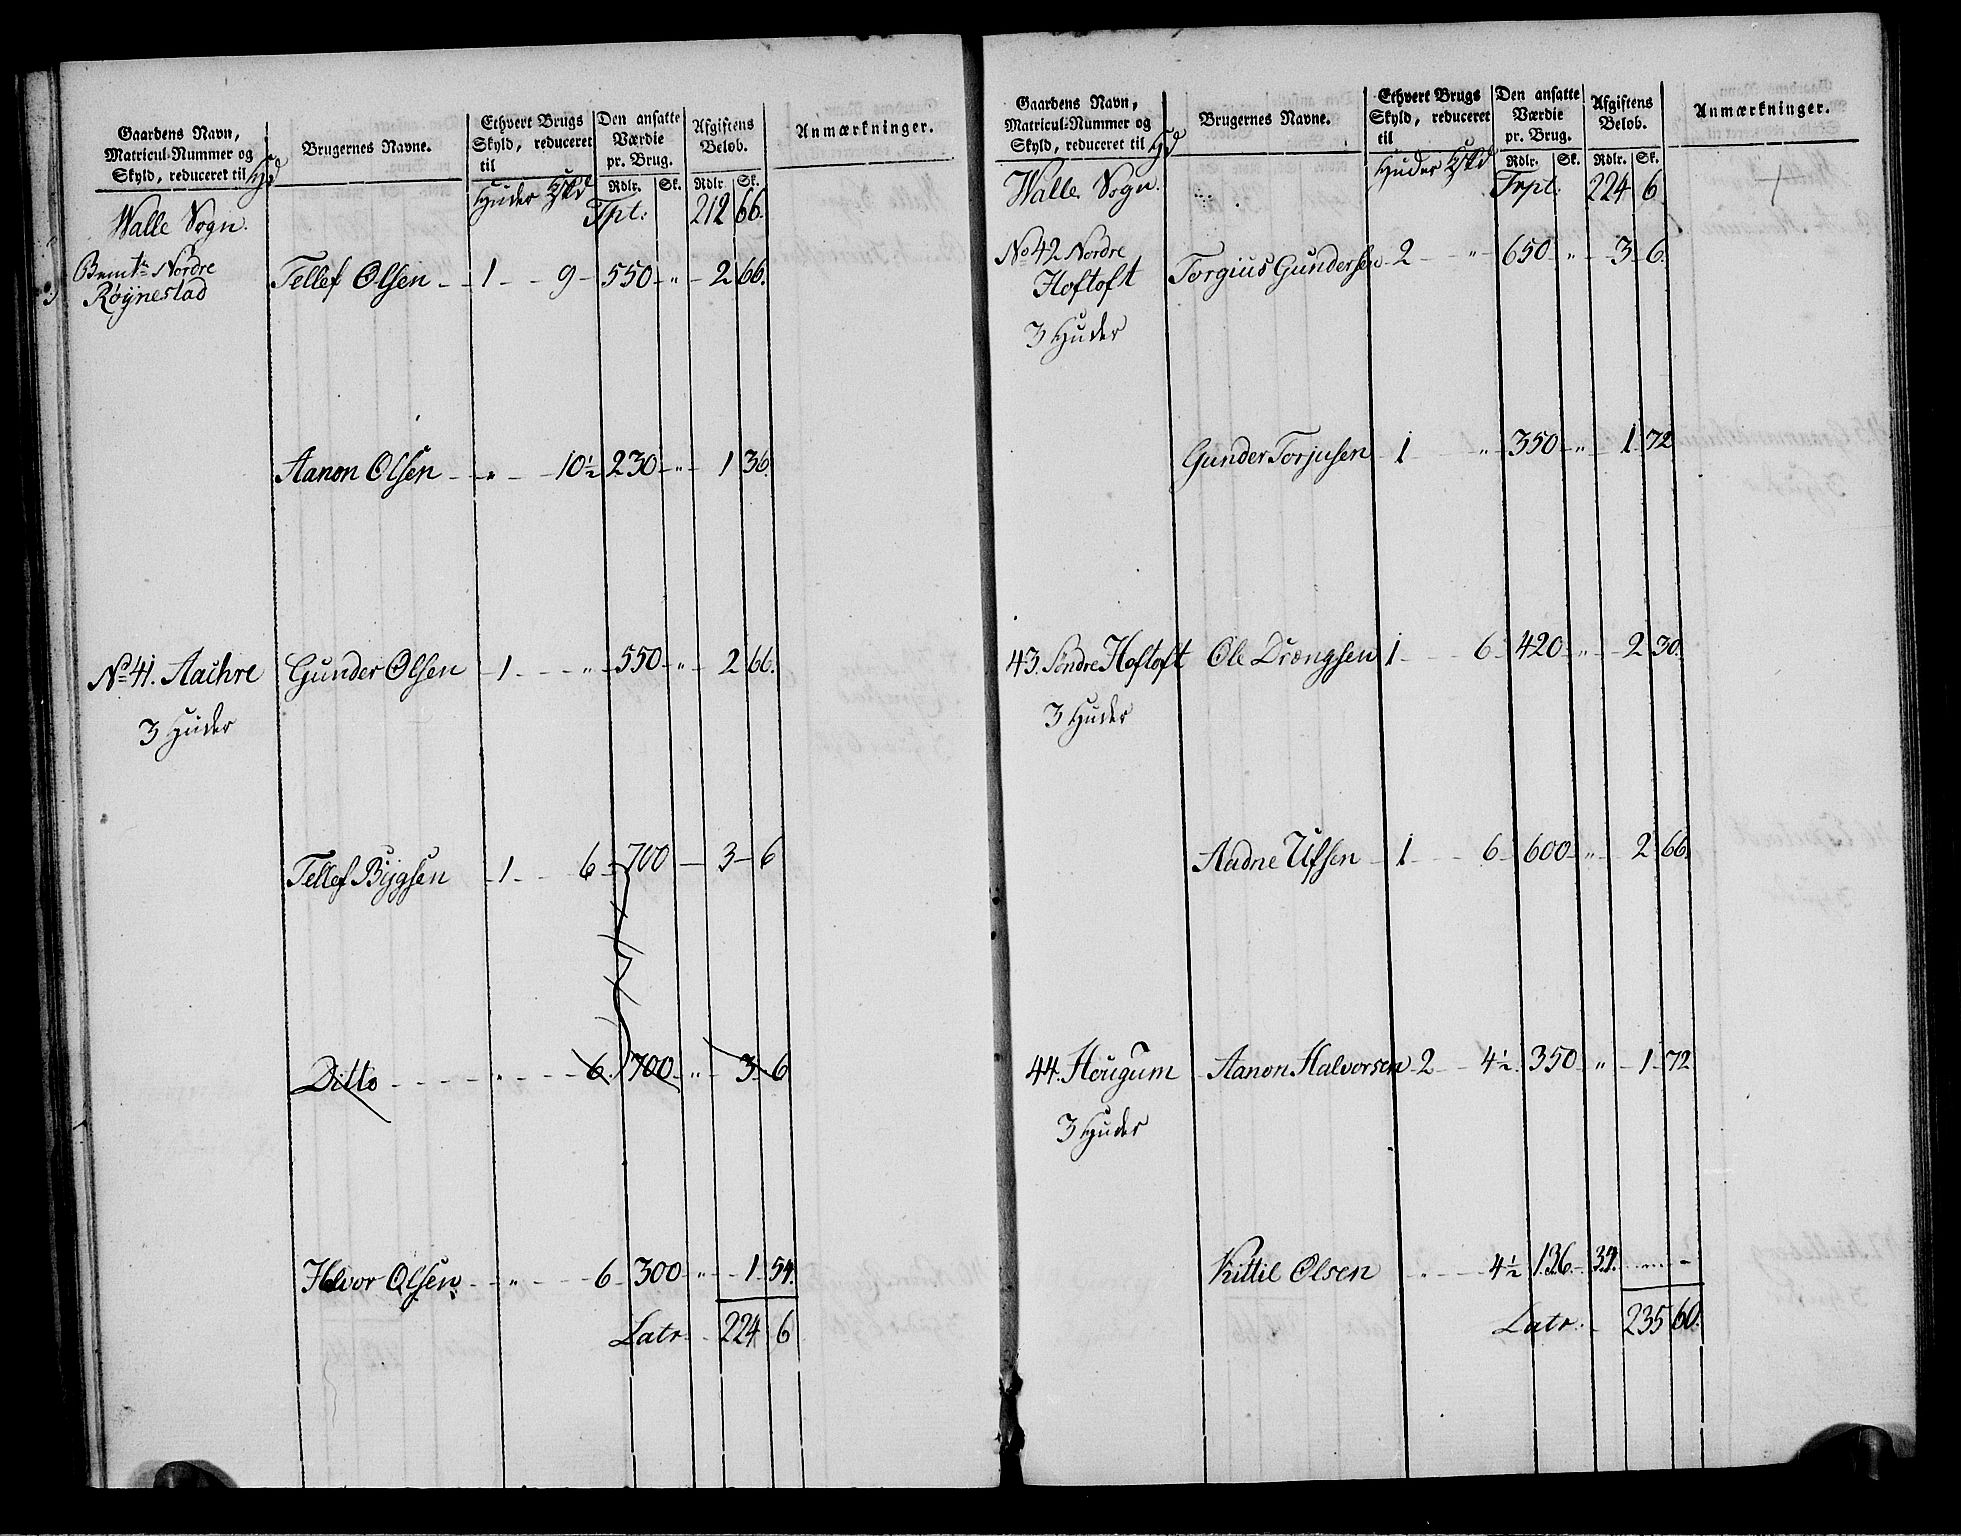 Gaardens Navn, Matricul-Nummer og Skyld, reduceret til Hd | Brugernes Navne. | Ethvert Brugs Skyld, reduceret til Huder | Den ansatte Værdie pr. Brug. Rdlr. Sk. | Afgiftens Beløb. Rdlr. Sk. | Anmærkninger.
Walle Sogn. Tpt: 212 66.
Nordre Tellef Olsen 1 9 550 " 2 66.
Røynestad
Aanon Olsen " 10½ 230 " 1 36.
No 41. Aachre Gunder Olsen 1 " 550 " 2 66.
3 Huder
Tellef Bygsen 1 6 700 3 6
Ditto " 6. 700 " 3 6
Halvor Olsen " 6 300 " 1 54.
Latr. 224 6
Gaardens Navn, Matricul-Nummer og Skyld, reduceret til Hd | Brugernes Navne. | Ethvert Brugs Skyld, reduceret til Huder | Den ansatte Værdie pr. Brug. Rdlr. Sk. | Afgiftens Beløb. Rdlr. Sk. | Anmærkninger.
Walle Sogn. Trpt: 224 6.
No 42 Nordre Torgius Gundersen 2 " 650 " 3 6.
Hoftoft
3 Huder
Gunder Torjusen 1 " 350 " 1 72
43. Søndre Hoftoft Ole Drængsen 1 6 420 " 2 30.
3 Huder
Aadne Ufsen 1 6 600 " 2 66.
44. Hougum Aanon Halvorsen 2 4½ 350 " 1 72
3 Huder
Kittil Olsen " 4½ 136
Latr. 235 60.